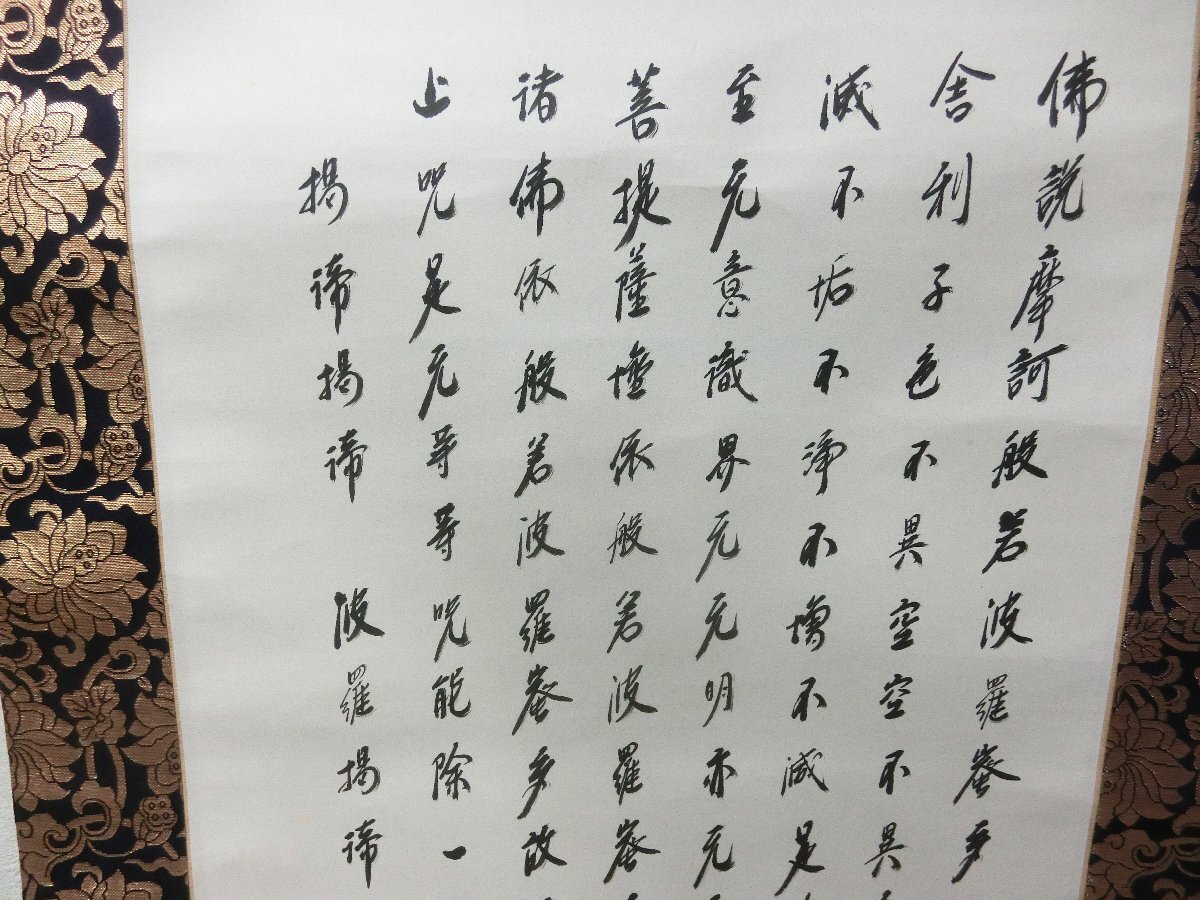 佛説摩訶般若波羅蜜多
舎利子色不異空空不異
滅不垢不浄不増不減是
至无意識界无无明亦无
菩提薩埵依般若波羅蜜
诸佛依般若波羅蜜多故
上呪是无等等呪能除一
揭諦揭諦 波羅揭諦